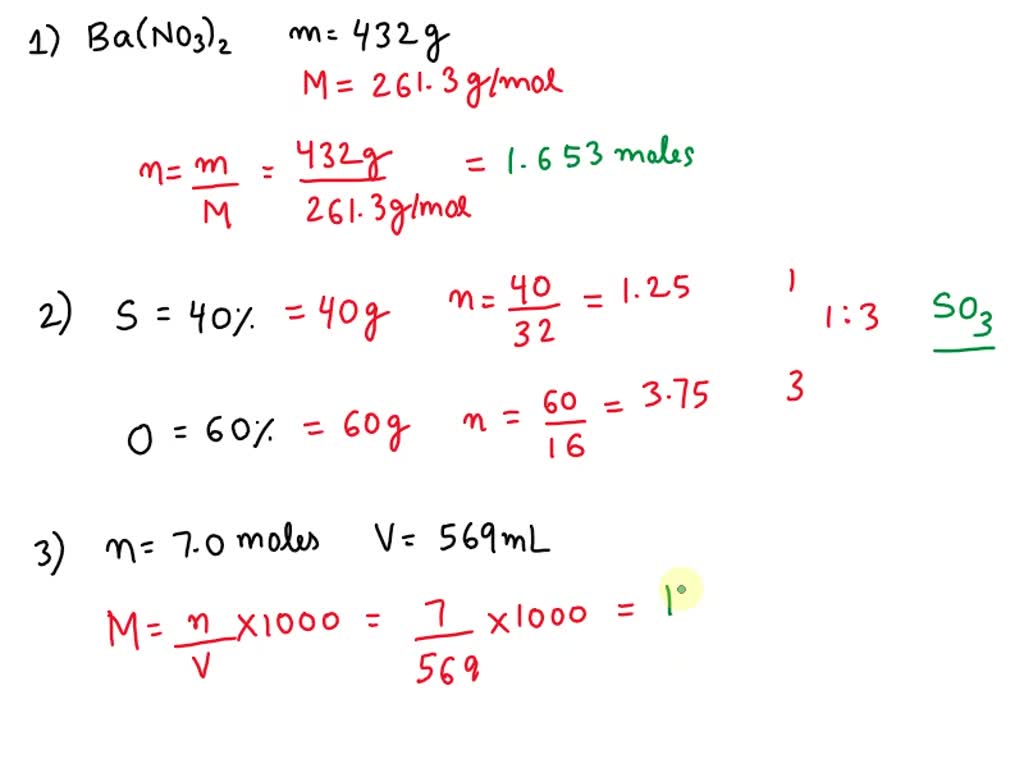 1) Ba(NO₃)₂ m = 432g
M = 261.3 g/mol
n = m/M = 432g / 261.3 g/mol = 1.653 moles
2) S = 40% = 40g n = 40/32 = 1.25 1 1:3 SO₃
O = 60% = 60g n = 60/16 = 3.75 3
3) n = 7.0 moles V = 569 mL
M = n/V ×1000 = 7/569 ×1000 = 1